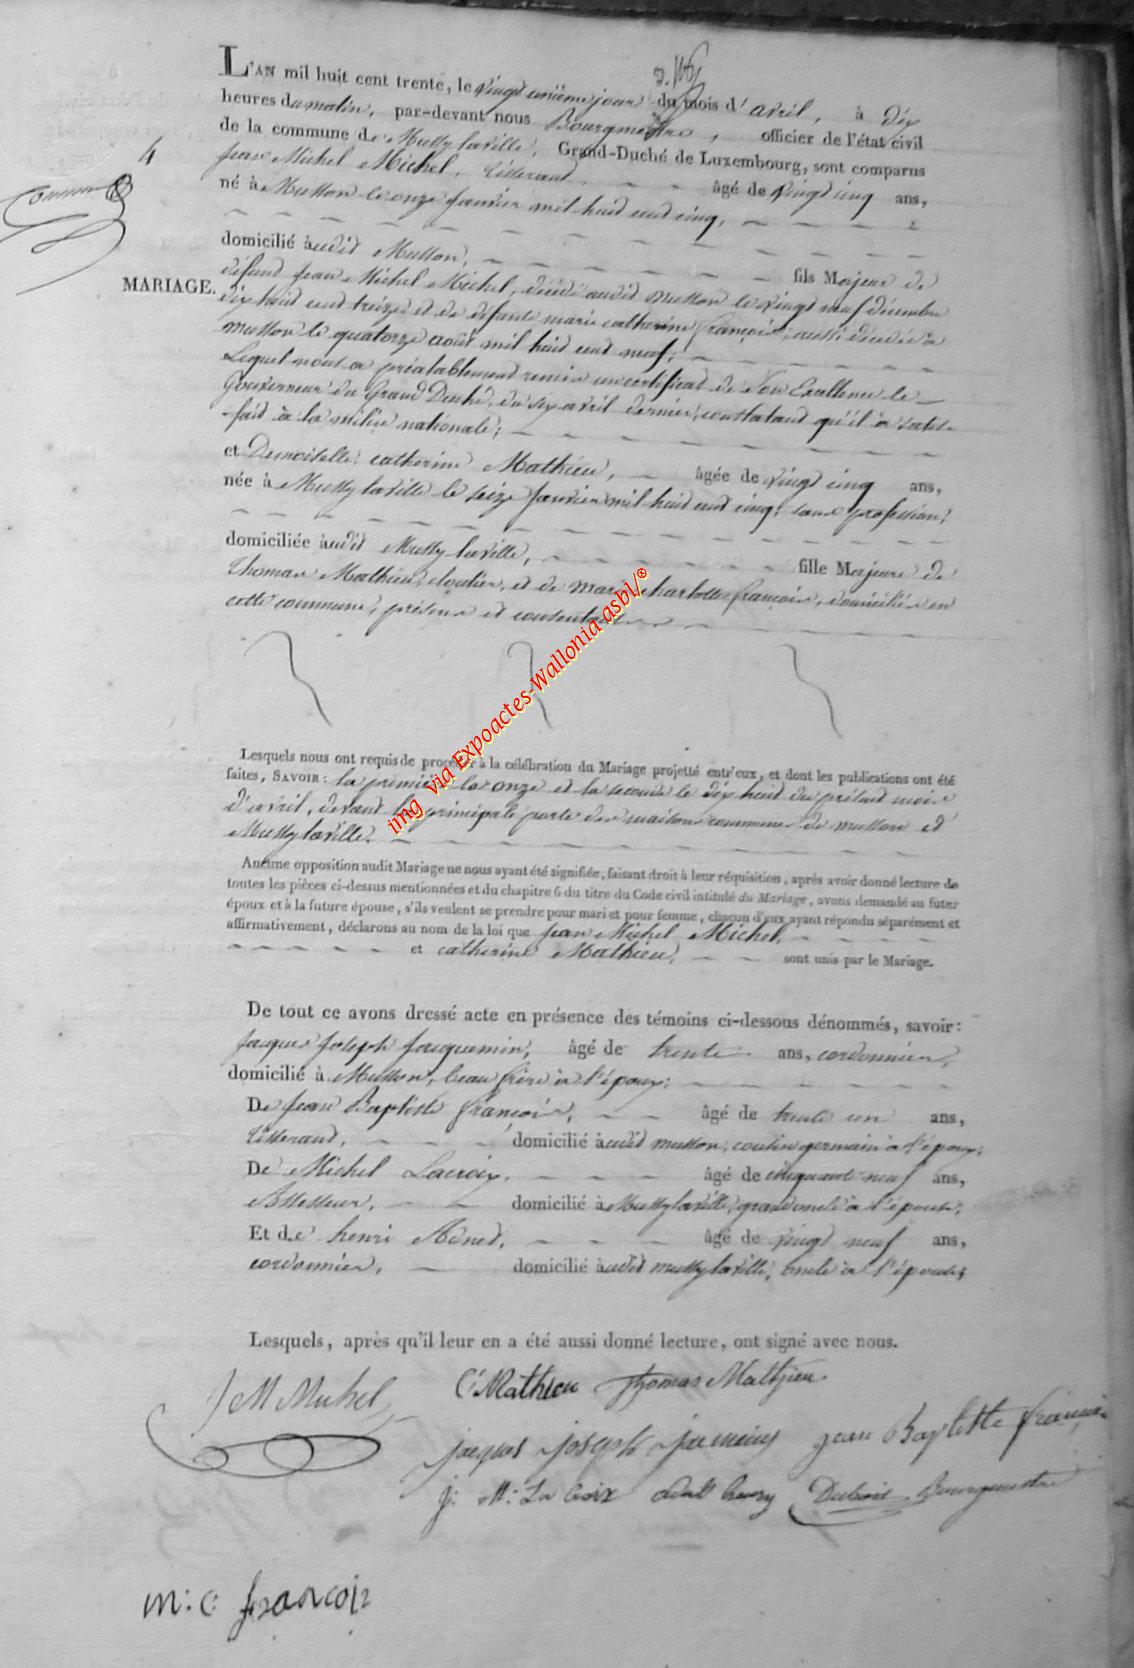 L'AN mil huit cent trente, le vingt unième jour du mois d'avril, à dix
heures du matin, par-devant nous Bourgmestre, officier de l'état civil
de la commune de Mussy laville, Grand-Duché de Luxembourg, sont comparus
4
Jean Michel Michel, tisserand, âgé de vingt cinq ans,
né à Musson le onze janvier mil huit cent cinq,
domicilié audit Musson, fils Majeur de
MARIAGE.
défunt Jean Michel Michel, décédé audit musson le vingt neuf décembre
dix huit cent treize et de défunte marie catherine françois, aussi décédée à
musson le quatorze août mil huit cent neuf;
Lequel nous a préalablement remis un certificat de Son Excellence le
Gouverneur du Grand Duché, du six avril dernier, constatant qu'il a satis-
fait à la milice nationale;
et Demoiselle catherine Mathieu, âgée de vingt cinq ans,
née à Mussy laville le seize janvier mil huit cent cinq, sans profession,
domiciliée audit Mussy laville, fille Majeure de
Thomas Mathieu, cloutier, et de marie charlotte françois, domiciliés en
cette commune, présens et consentans
Lesquels nous ont requis de procéder à la célébration du Mariage projetté entr'eux, et dont les publications ont été
faites, SAVOIR: la première le onze et la seconde le dix huit du présent mois
d'avril, devant la principale porte des maisons communes de musson et
Mussy laville.
Aucune opposition audit Mariage ne nous ayant été signifiée, faisant droit à leur réquisition, après avoir donné lecture de
toutes les pièces ci-dessus mentionnées et du chapitre 6 du titre du Code civil intitulé du Mariage, avons demandé au futur
époux et à la future épouse, s'ils veulent se prendre pour mari et pour femme, chacun d'eux ayant répondu séparément et
affirmativement, déclarons au nom de la loi que Jean Michel Michel,
et catherine Mathieu, sont unis par le Mariage.
De tout ce avons dressé acte en présence des témoins ci-dessous dénommés, savoir:
Jacques Joseph Jacquemin, âgé de trente ans, cordonnier,
domicilié à Musson, beau frère à l'époux;
De Jean Baptiste françois, âgé de trente un ans,
tisserand, domicilié audit musson, cousin germain à l'époux;
De Michel Lacroix, âgé de cinquante neuf ans,
Assesseur, domicilié à Mussy laville, grand oncle à l'épouse;
Et de henri Adnet, âgé de vingt neuf ans,
cordonnier, domicilié audit mussy laville, oncle à l'épouse;
Lesquels, après qu'il leur en a été aussi donné lecture, ont signé avec nous.
JM Michel C: Mathieu Thomas Mathieu
jacques joseph jean Baptiste françois
j: M: La Croix henry Bourgmestre
m: c: françois
img via Expoactes-Wallonia asbl/®